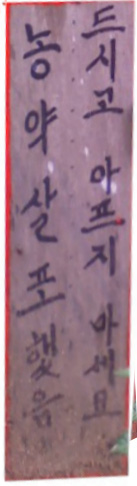 드시고 아프지 마세요
농약살포했음